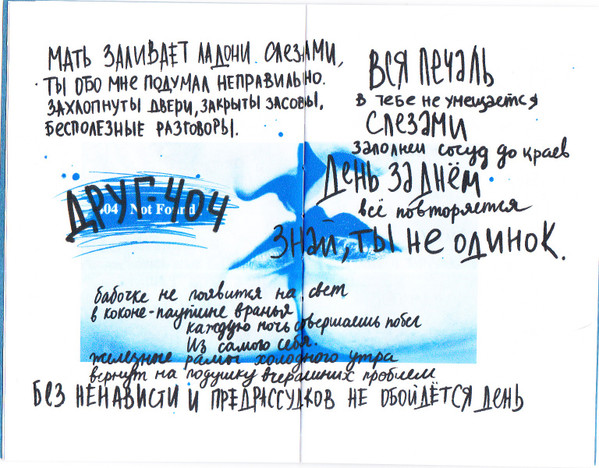 МАТЬ ЗАЛИВАЕТ ЛАДОНИ СЛЕЗАМИ,
ТЫ ОБО МНЕ ПОДУМАЛ НЕПРАВИЛЬНО.
ЗАХЛОПНУТЫ ДВЕРИ, ЗАКРЫТЫ ЗАСОВЫ,
БЕСПОЛЕЗНЫЕ РАЗГОВОРЫ.
ВСЯ ПЕЧАЛЬ
в тебе не умещается
СЛЕЗАМИ
заполнен сосуд до краев
ДЕНЬ ЗА ДНЁМ
всё повторяется
ЗНАЙ, ТЫ НЕ ОДИНОК.
ДРУГ-404
404 Not Found
бабочке не появится на свет
в коконе-паутине вранья
каждую ночь совершаешь побег
Из самого себя.
железные рамы холодного утра
вернут на подушку вчерашних проблем
БЕЗ НЕНАВИСТИ И ПРЕДРАССУДКОВ НЕ ОБОЙДЁТСЯ ДЕНЬ